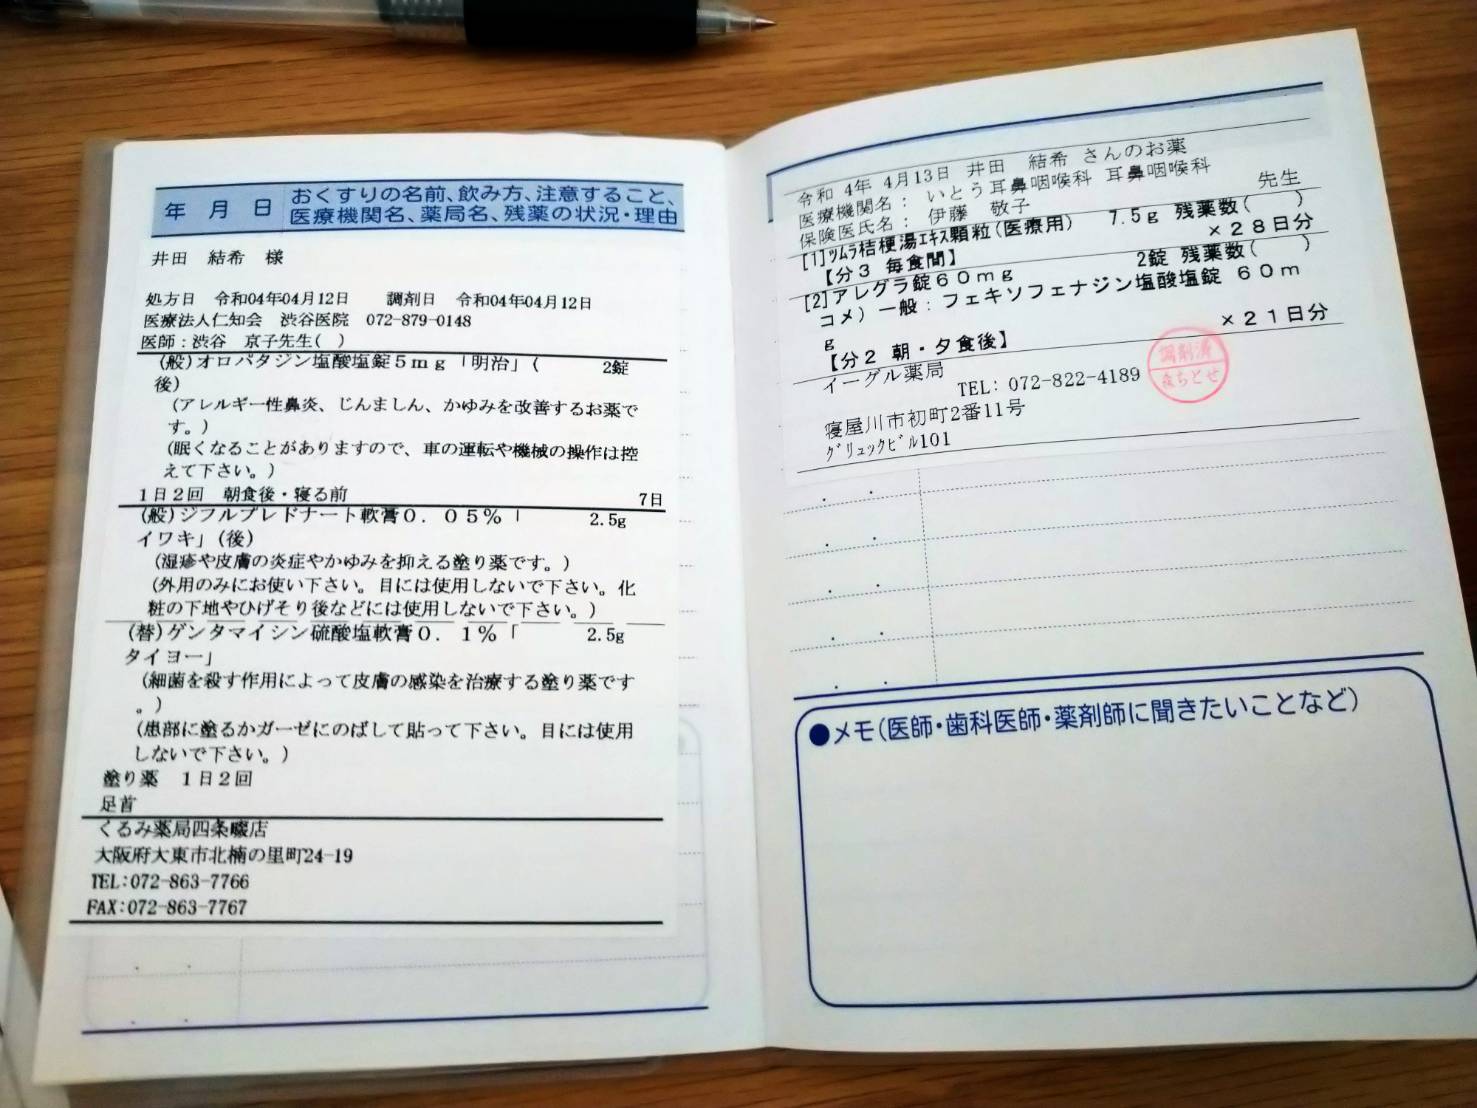 年 月 日
おくすりの名前、飲み方、注意すること、
医療機関名、薬局名、残薬の状況・理由
井田 結希 様
処方日 令和04年04月12日 調剤日 令和04年04月12日
医療法人仁知会 渋谷医院 072-879-0148
医師:渋谷 京子先生( )
(般)オロパタジン塩酸塩錠5mg「明治」( 2錠
後)
(アレルギー性鼻炎、じんましん、かゆみを改善するお薬で
す。)
(眠くなることがありますので、車の運転や機械の操作は控
えて下さい。)
1日2回 朝食後・寝る前 7日
(般)ジフルプレドナート軟膏0.05%「 2.5g
イワキ」(後)
(湿疹や皮膚の炎症やかゆみを抑える塗り薬です。)
(外用のみにお使い下さい。目には使用しないで下さい。化
粧の下地やひげそり後などには使用しないで下さい。)
(替)ゲンタマイシン硫酸塩軟膏0.1%「 2.5g
タイヨー」
(細菌を殺す作用によって皮膚の感染を治療する塗り薬です
。)
(患部に塗るかガーゼにのばして貼って下さい。目には使用
しないで下さい。)
塗り薬 1日2回
足首
くるみ薬局四条畷店
大阪府大東市北楠の里町24-19
TEL:072-863-7766
FAX:072-863-7767
令和 4年 4月13日 井田 結希 さんのお薬
医療機関名: いとう耳鼻咽喉科 耳鼻咽喉科
保険医氏名: 伊藤 敬子 先生
[1]ツムラ桔梗湯エキス顆粒(医療用) 7.5g 残薬数( )
【分3 毎食間】 ×28日分
[2]アレグラ錠60mg 2錠 残薬数( )
コメ)一般:フェキソフェナジン塩酸塩錠 60m
g
【分2 朝・夕食後】 ×21日分
イーグル薬局
TEL: 072-822-4189
調剤済
森ちとせ
寝屋川市初町2番11号
グリュックビル101
●メモ(医師・歯科医師・薬剤師に聞きたいことなど)